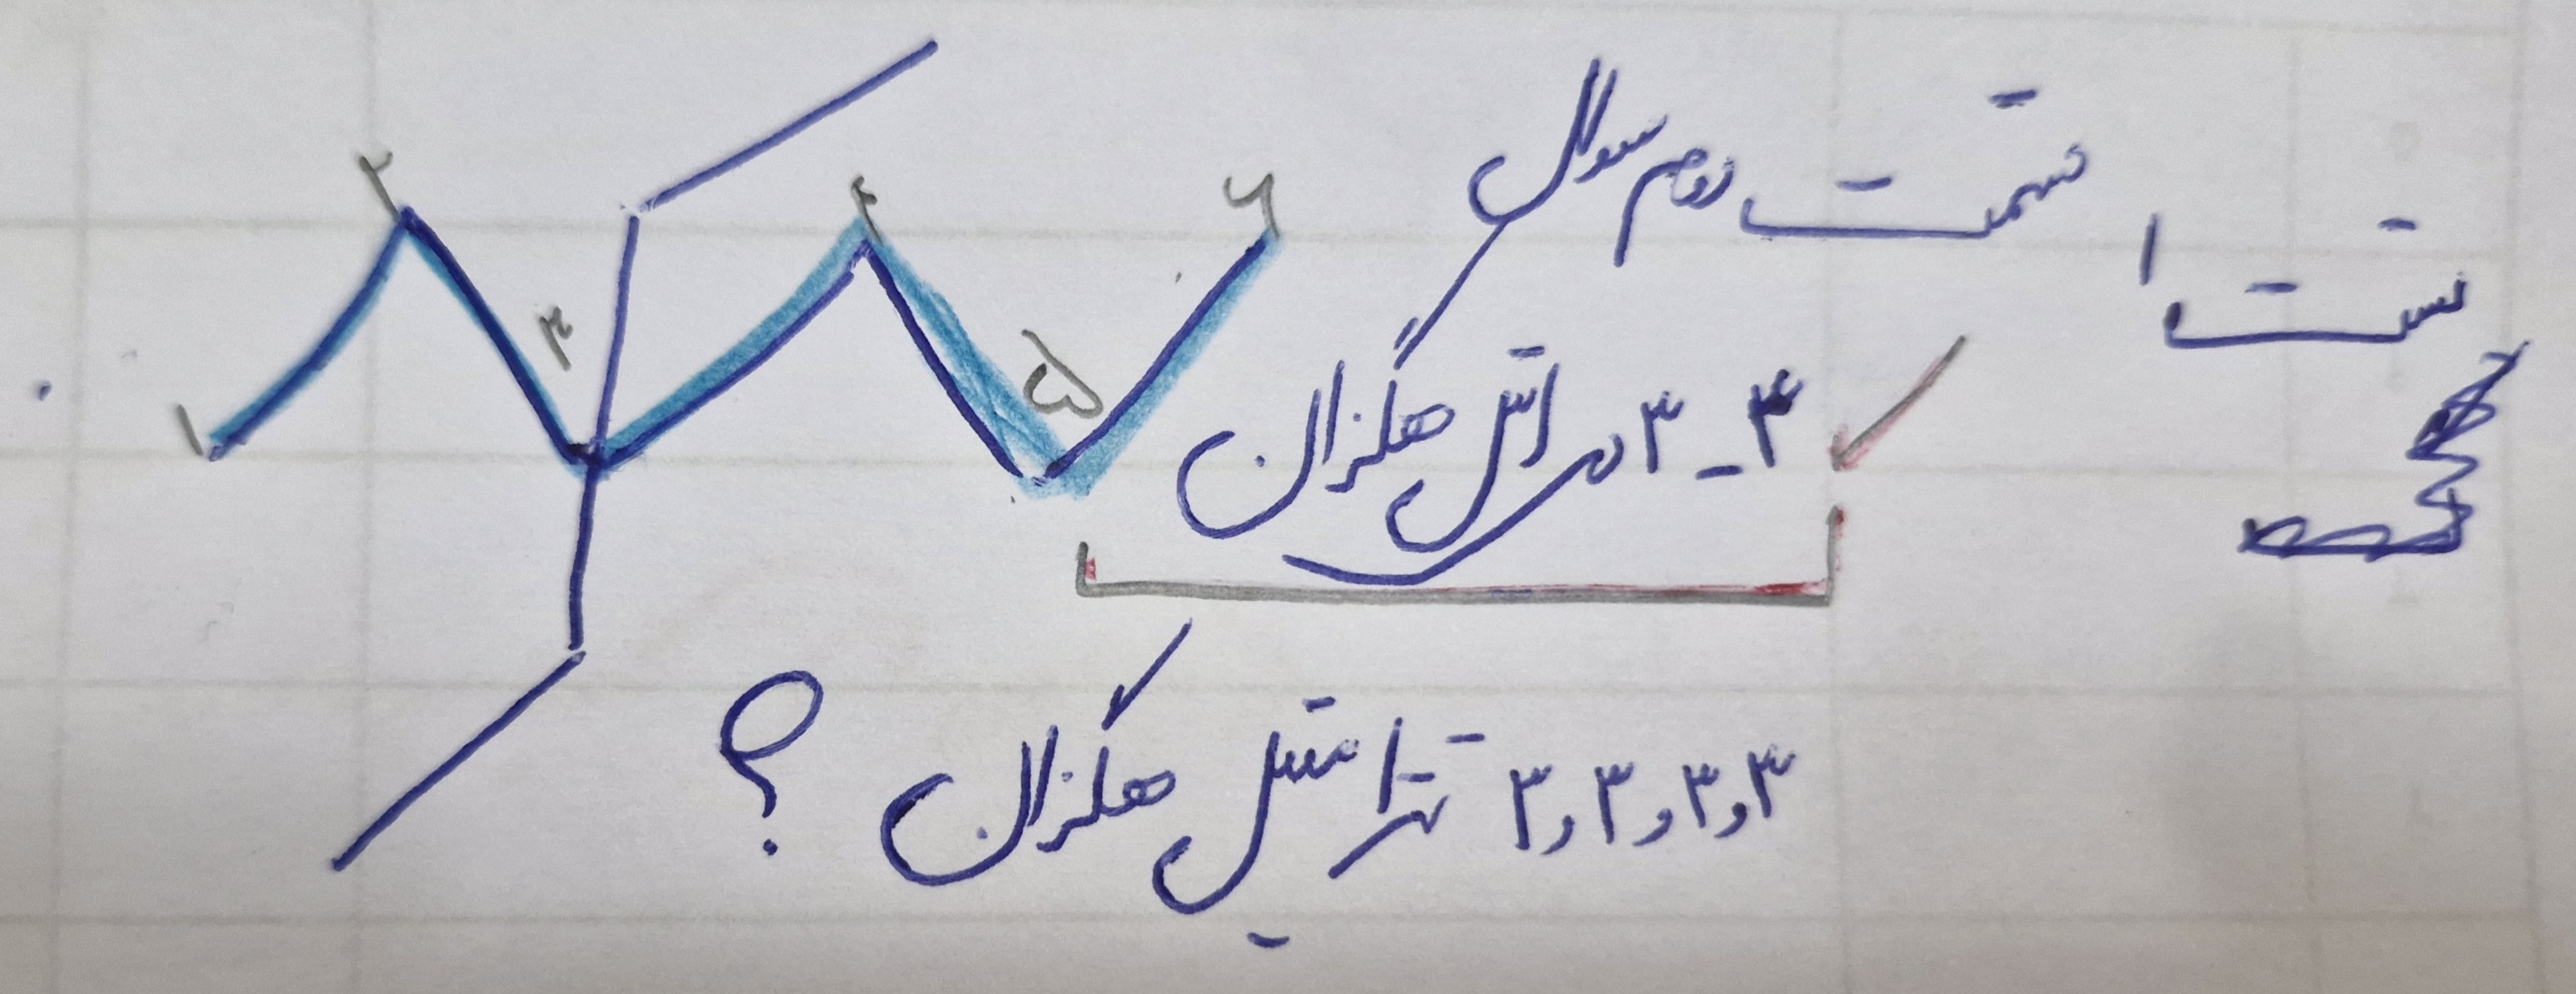 تست ۱ قسمت دوم سوال
۳-۳ دی اتیل هگزان
۳,۳,۳,۳ تترا متیل هگزان ؟
۱
۲
۳
۴
۵
۶